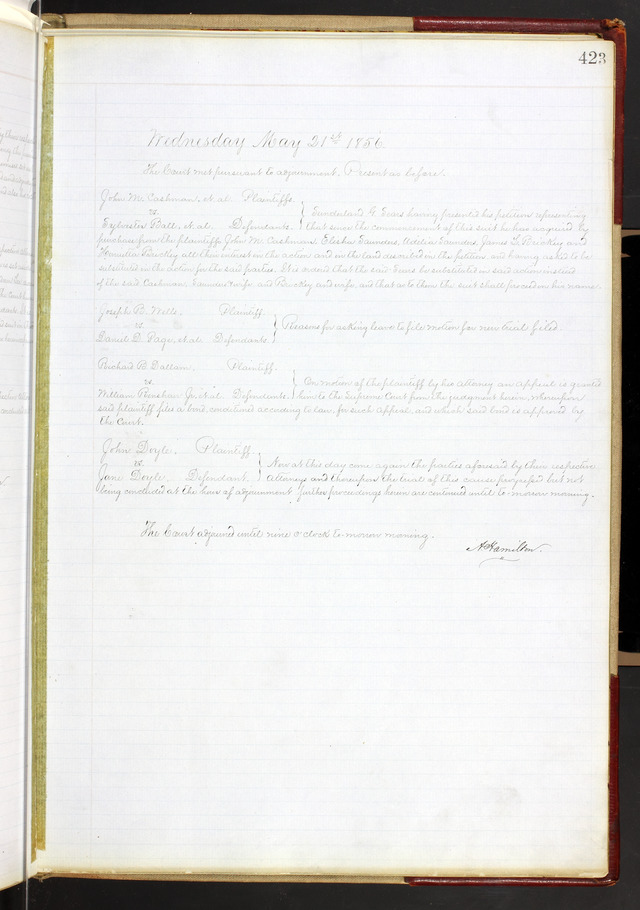 423
Wednesday May 21st 1856.
The Court met pursuant to adjournment. Present as before.
John M. Cashman, et al. Plaintiffs.
vs.
Sylvester Ball, et al. Defendants.
G. Evans having presented his petition representing
that since the commencement of this suit he has acquired by
purchase from the plaintiffs John M. Cashman, James L. Barkley and
Barkley all their interest in the action and in the land described in the petition, and having asked to be
substituted in the action for the said parties. It is ordered that the said Evans be substituted in said action instead
of the said Cashman, and wife and Barkley and wife, and that as to them the suit shall proceed in his name.
Joseph B. Wells, Plaintiff.
vs.
Daniel D. Page, et al. Defendants.
Reasons for asking leave to file motion for new trial filed.
Richard B Dallam, Plaintiff.
vs.
William Renshaw Jr. et al. Defendants.
On motion of the plaintiff by his attorney an appeal is granted
him to the Supreme Court from the judgment herein, whereupon
said plaintiff files a bond, conditioned according to law, for such appeal, and which said bond is approved by
the Court.
John Doyle, Plaintiff.
vs.
Jane Doyle, Defendant.
Now at this day come again the parties aforesaid by their respective
attorneys and thereupon the trial of this cause progressed but not
being concluded at the hour of adjournment further proceedings herein are continued until to-morrow morning.
The Court adjourned until nine o'clock to-morrow morning.
A Hamilton.